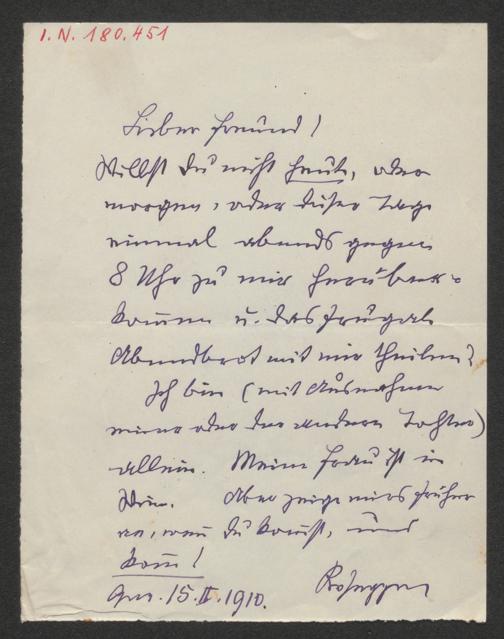 I.N. 180.451
Lieber Freund!
Willst Du nicht heute, oder
morgen, oder dieser Tage
einmal abends gegen
8 Uhr zu mir herüber-
kom̅en u. das frugale
Abendbrot mit mir theilen?
Ich bin (mit Ausnahme
einer oder der anderen Tochter)
allein. Meine Frau ist in
Wien. Aber zeige mirs früher
an, wen̅ Du kom̅st, und
kom̅!
Graz. 15.II.1910. Rosegger